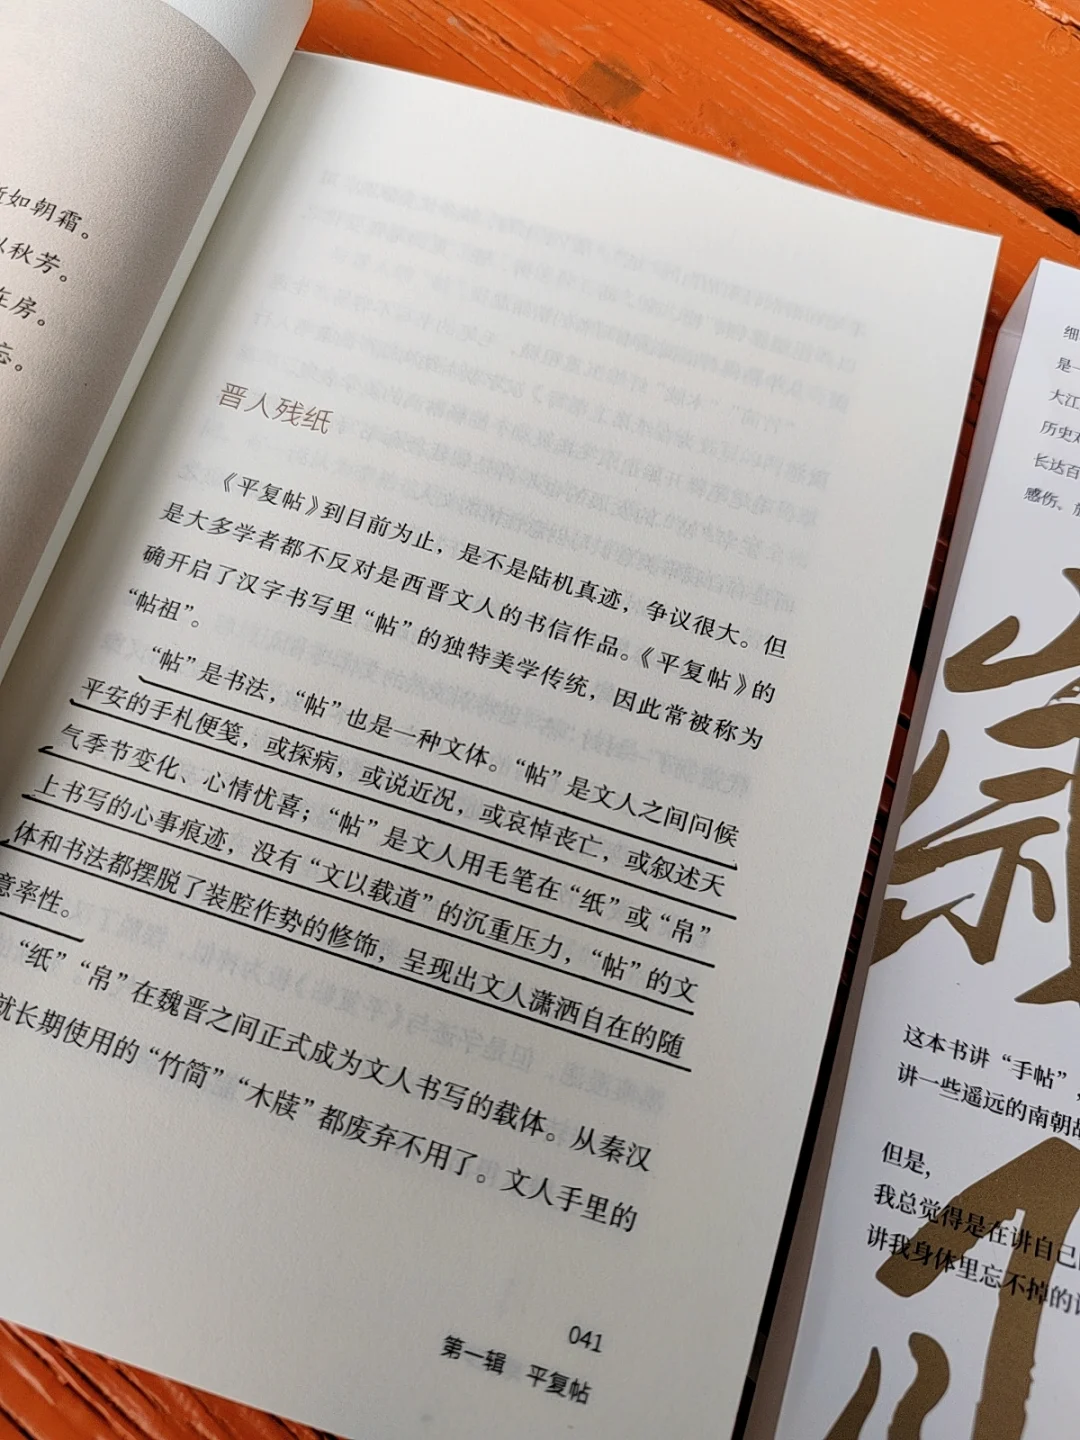 如朝霜。
秋芳。
在房。
忘。
晋人残纸
《平复帖》到目前为止，是不是陆机真迹，争议很大。但
是大多学者都不反对是西晋文人的书信作品。《平复帖》的
确开启了汉字书写里“帖”的独特美学传统，因此常被称为
“帖祖”。
“帖”是书法，“帖”也是一种文体。“帖”是文人之间问候
平安的手札便笺，或探病，或说近况，或哀悼丧亡，或叙述天
气季节变化、心情忧喜；“帖”是文人用毛笔在“纸”或“帛”
上书写的心事痕迹，没有“文以载道”的沉重压力，“帖”的文
体和书法都摆脱了装腔作势的修饰，呈现出文人潇洒自在的随
意率性。
“纸”“帛”在魏晋之间正式成为文人书写的载体。从秦汉
就长期使用的“竹简”“木牍”都废弃不用了。文人手里的
041
第一辑 平复帖
细
是一
大江
历史
长达百
感伤、
这本书讲“手帖”，
讲一些遥远的南朝故
但是，
我总觉得是在讲自己
讲我身体里忘不掉的